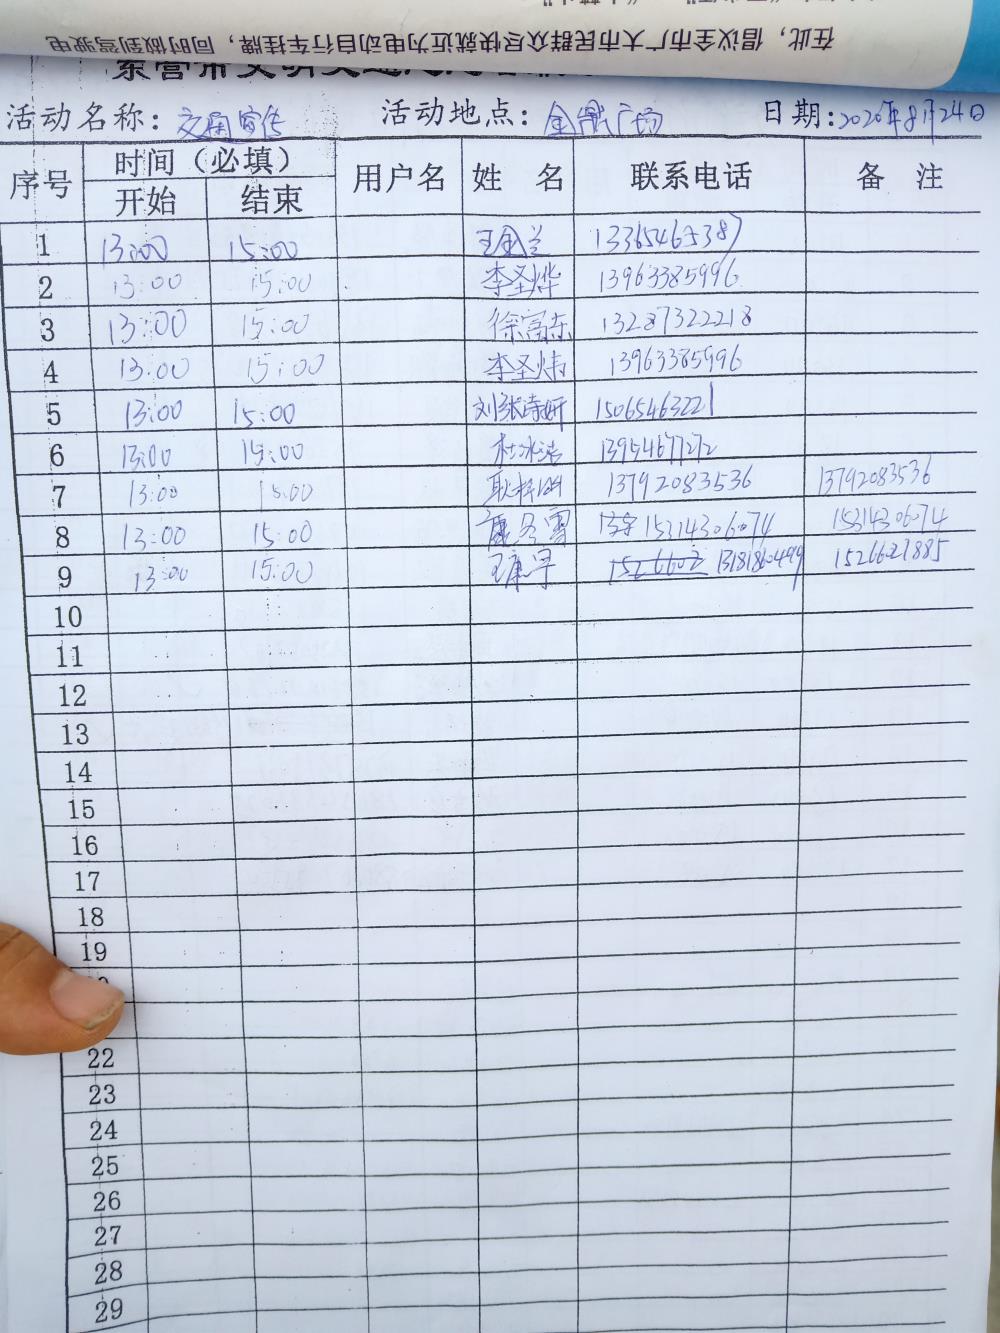 在此，倡议全市广大市民群众尽快就近为电动自行车挂牌，同时做到驾驶电
活动名称：交通宣传 活动地点：金鼎广场 日期：2020年8月24日
序号 时间（必填） 用户名 姓 名 联系电话 备 注
开始 结束
1 13:00 15:00 王金兰 13365465387
2 13:00 15:00 李圣烨 13963385996
3 13:00 15:00 徐富东 13287322218
4 13:00 15:00 李圣炜 13963385996
5 13:00 15:00 刘张诗妍 15065463221
6 13:00 15:00 杜冰洁 13954677272
7 13:00 15:00 13792083536 13792083536
8 13:00 15:00 15314306074 15314306074
9 13:00 15:00 王康宇 13181860449 15266027885
10
11
12
13
14
15
16
17
18
19
22
23
24
25
26
27
28
29